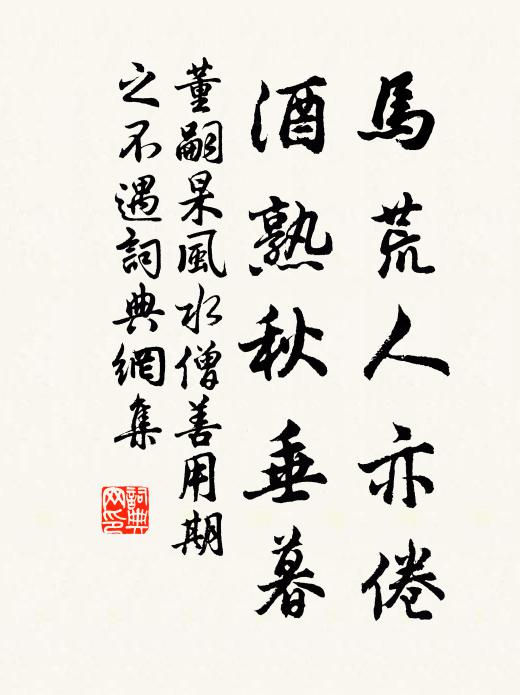 馬荒人亦倦
酒熟秋垂暮
董嗣杲風水僧善用期
之不遇詞典網集
詞典网印